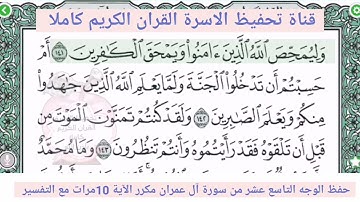 قناة تحفيظ الاسرة القران الكريم كاملا
وَلِيُمَحِّصَ ٱللَّهُ ٱلَّذِينَ ءَامَنُوا۟ وَيَمْحَقَ ٱلْكَـٰفِرِينَ ١٤١ أَمْ
حَسِبْتُمْ أَن تَدْخُلُوا۟ ٱلْجَنَّةَ وَلَمَّا يَعْلَمِ ٱللَّهُ ٱلَّذِينَ جَـٰهَدُوا۟
مِنكُمْ وَيَعْلَمَ ٱلصَّـٰبِرِينَ ١٤٢ وَلَقَدْ كُنتُمْ تَمَنَّوْنَ ٱلْمَوْتَ مِن
قَبْلِ أَن تَلْقَوْهُ فَقَدْ رَأَيْتُمُوهُ وَأَنتُمْ تَنظُرُونَ ١٤٣ وَمَا مُحَمَّدٌ
حفظ الوجه التاسع عشر من سورة آل عمران مكرر الآية 10مرات مع التفسير